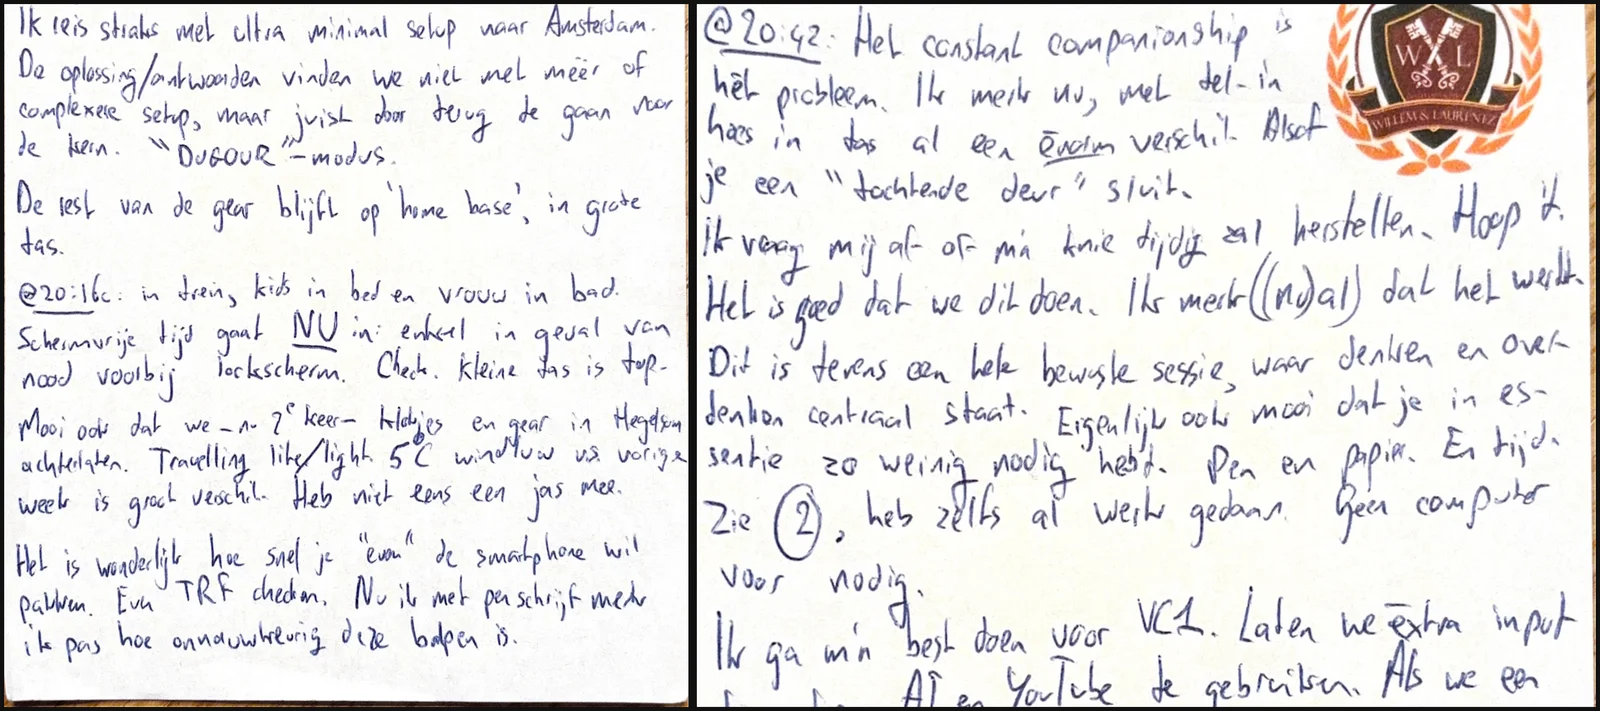 Ik reis straks met ultra minimal setup naar Amsterdam.
De oplossing/antwoorden vinden we niet met méér of
complexere setup, maar juist door terug te gaan naar
de kern. "DUGOUR"-modus.
De rest van de gear blijft op 'home base', in grote
tas.
@20:16c: in trein, kids in bed en vrouw in bad.
Schermvrije tijd gaat NU in: enkel in geval van
nood voorbij lockscherm. Check. Kleine tas is top-
Mooi ook dat we -nu 2e keer- klotjes en gear in Hegelsom
achterlaten. Travelling lite/light. 5°C windluw vs. vorige
week is groot verschil. Heb niet eens een jas mee.
Het is wonderlijk hoe snel je "even" de smartphone wil
pakken. Even TRF checken. Nu ik met pen schrijf merk
ik pas hoe onnauwkeurig deze balpen is.
@20:42: Het constant companionship is
hét probleem. Ik merk nu, met tel-in
hoes in tas al een énorm verschil. Alsof
je een "tochtende deur" sluit.
Ik vraag mij af of m'n knie tijdig zal herstellen. Hoop 't.
Het is goed dat we dit doen. Ik merk ((nu)al) dat het werkt.
Dit is tevens een hele bewuste sessie, waar denken en over-
denken centraal staat. Eigenlijk ook mooi dat je in es-
sentie zo weinig nodig hebt. Pen en papier. En tijd.
Zie 2, heb zelfs al werk gedaan. Geen computer
voor nodig.
Ik ga m'n best doen voor VC1. Laten we éxtra input
AI en YouTube te gebruiken. Als we een
W L
WILLEM & LAURENTZ